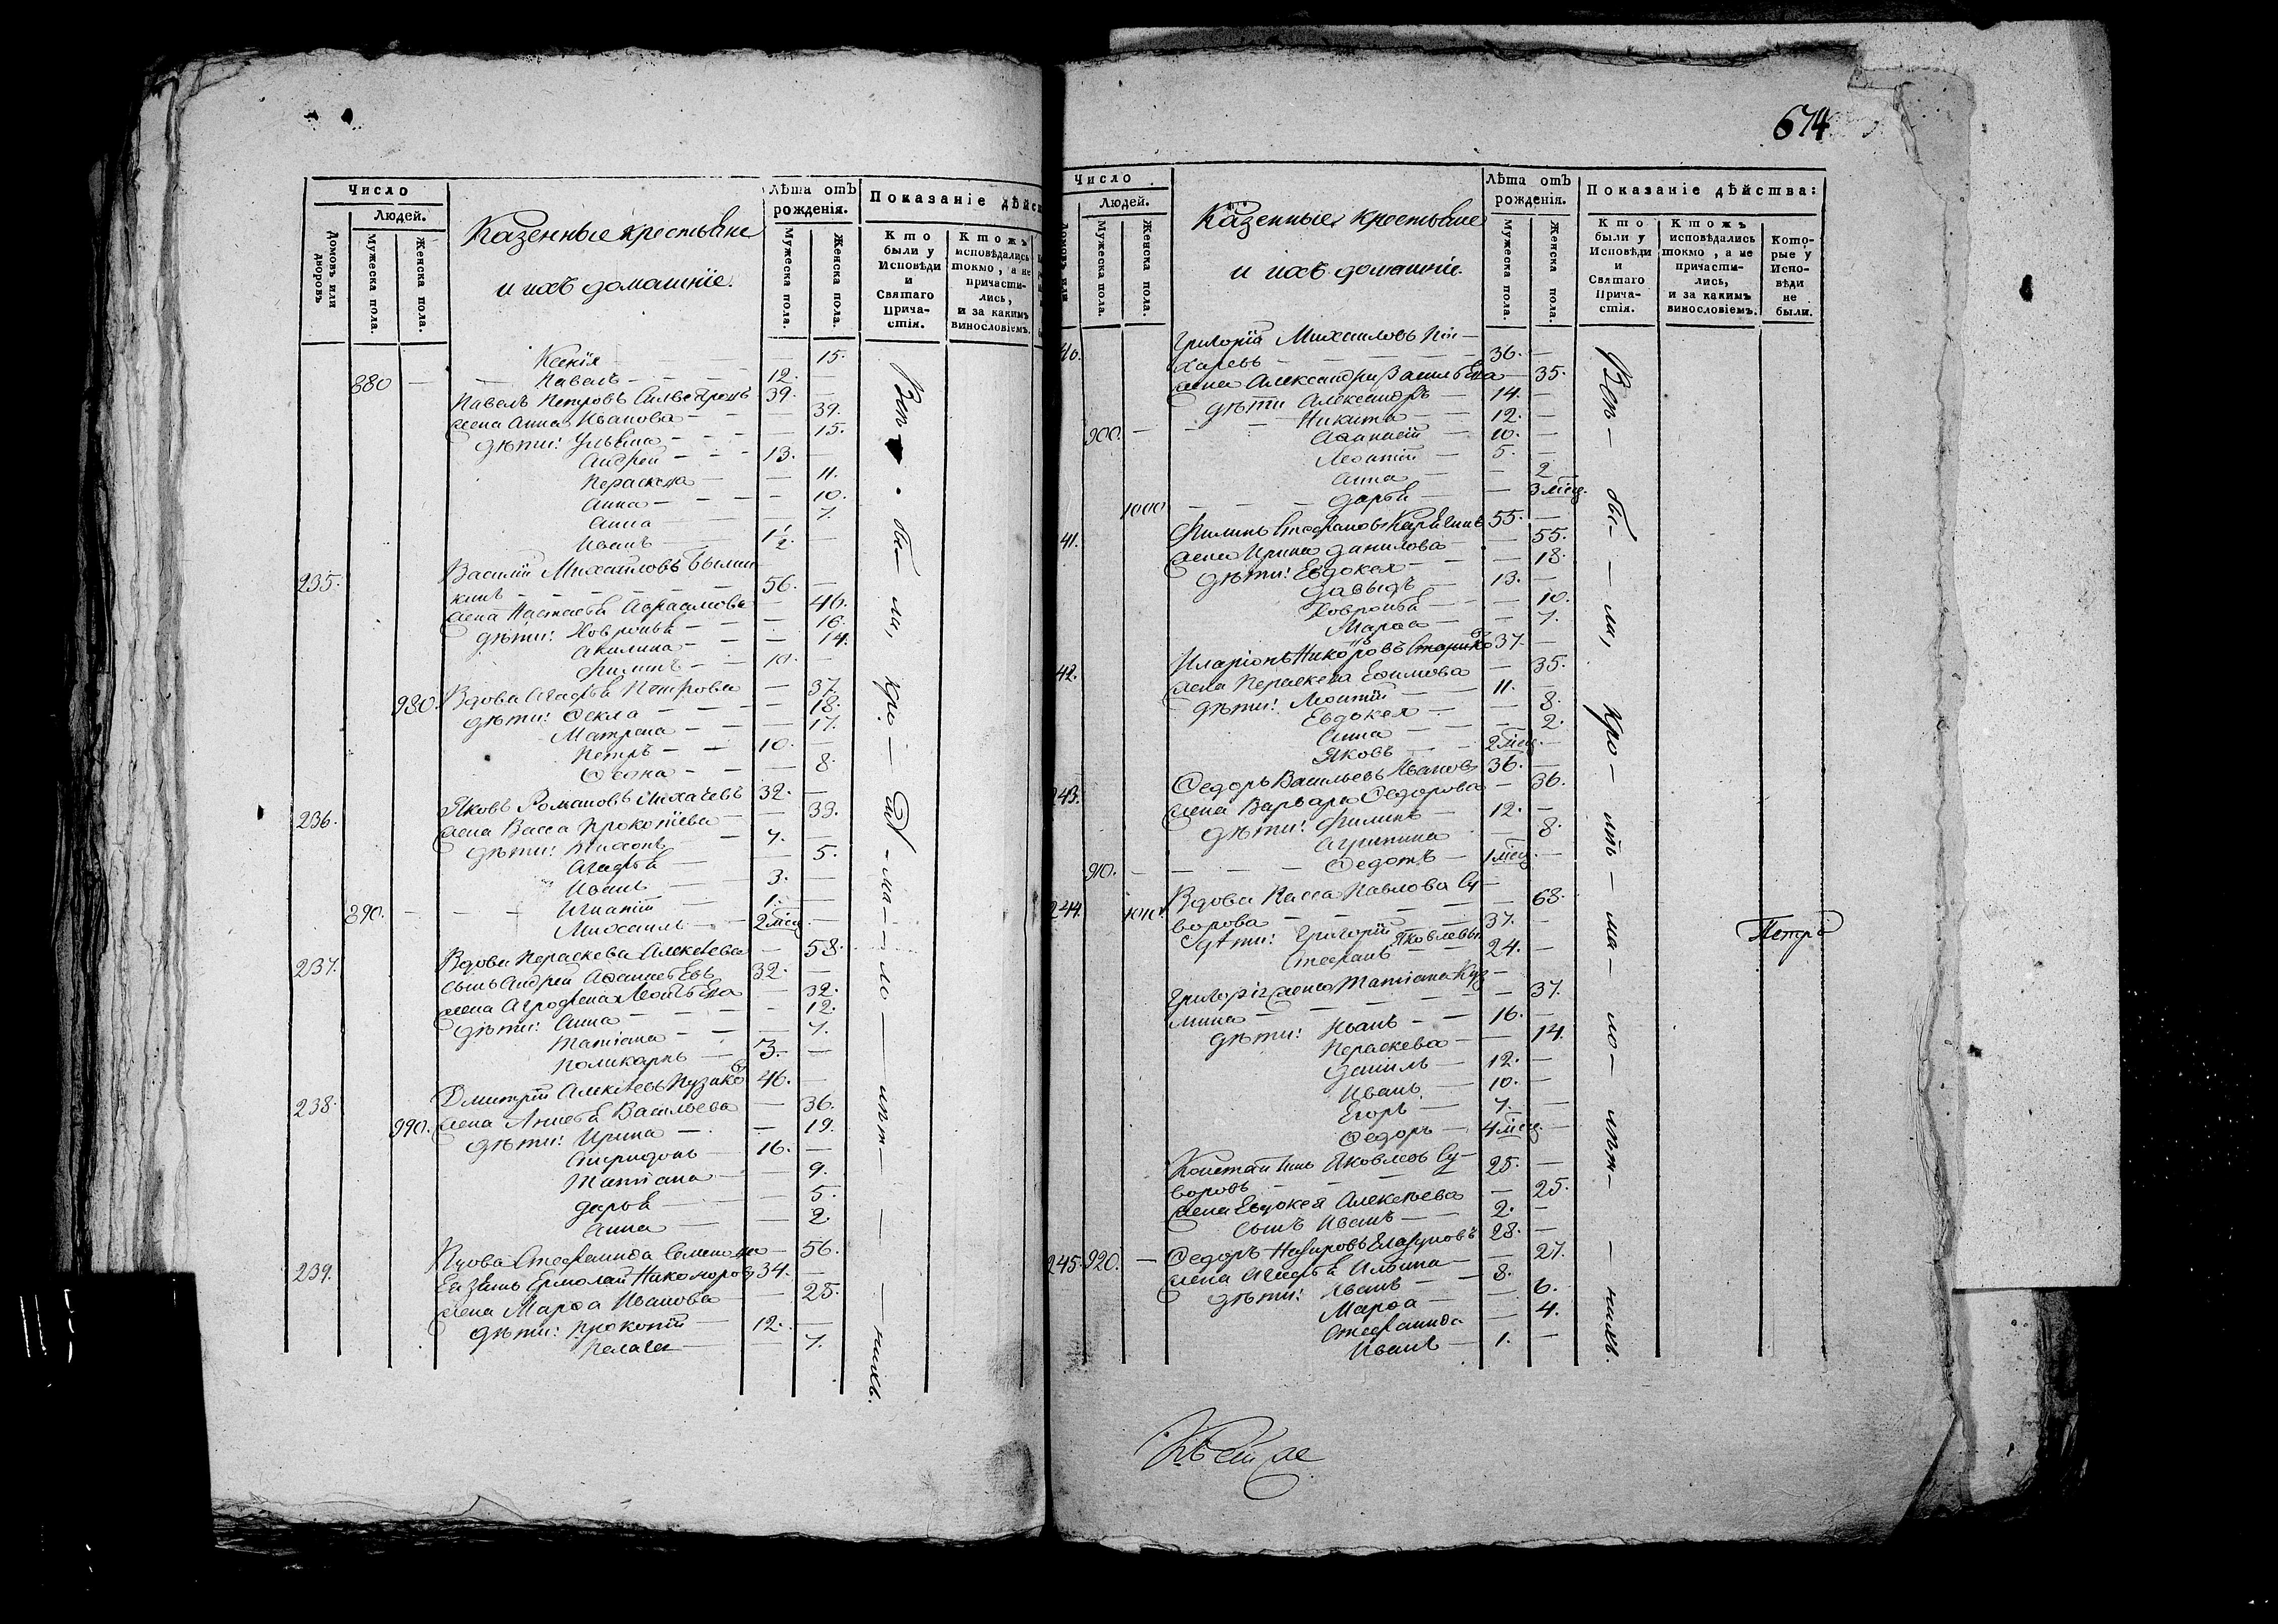 Число
Людей.
Домовъ или дворовъ
Мужеска пола.
Женска пола.
Казенные крестьяне
и ихъ домашніе.
Лѣта отъ рожденія.
Мужеска пола.
Женска пола.
Показаніе дѣйс
Кто были у Исповѣди и Святаго Прича-стія.
Ктожъ исповѣдались токмо, а не причасти-лись, и за какимъ винословіемъ.
Ксенія — 15.
880 — Павелъ — 12. —
Павелъ Петровъ 39. —
жена Анна Иванова — 39.
дѣти: Ульяна — 15.
Андрей — 13. —
Параскева — 11.
Анна — 10.
Анна — 7.
Иванъ — 1/2. —
235. Василій Михайловъ
кинъ — 56. —
жена Настасья Авраамова — 46.
дѣти: Ховронья — 16.
Акилина — 14.
Филипъ — 10. —
980. Вдова Агафья Петрова — 37.
дѣти: Ѳекла — 18.
Матрена — 17.
Петръ — 10. —
— 8.
236. Яковъ Романовъ Лихачевъ 32. —
жена Васса Прокопіева — 33.
дѣти: Тихонъ — 7. —
Агафья — 5.
Иванъ — 3. —
890. — Игнатій — 1. —
Михаилъ — 2 мѣсц. —
237. Вдова Параскева Алексѣева — 58.
сынъ Андрей 32. —
жена Агрофена — 32.
дѣти: Анна — 12.
Татіана — 7.
Поликарпъ — 3. —
238. Дмитрій Алексѣевъ 46. —
990. жена Анисья Васильева — 36.
дѣти: Ирина — 19.
Спиридонъ 16. —
Татіана — 9.
Дарья — 5.
Анна — 2.
239. Вдова Стефанида Семенова — 56.
Ея зять Ермолай Никоноровъ 34. —
жена Марѳа Иванова — 25.
дѣти: Прокопій — 12. —
Пелагея — 7.
Всѣ бы — ли, кро — мѣ — ма — ло — лѣт — нихъ.
674
Число
Людей.
Мужеска пола.
Женска пола.
Казенные крестьяне
и ихъ домашніе.
Лѣта отъ рожденія.
Мужеска пола.
Женска пола.
Показаніе дѣйства:
Кто были у Исповѣди и Святаго Прича-стія.
Ктожъ исповѣдались токмо, а не причасти-лись, и за какимъ винословіемъ.
Кото-рые у Испо-вѣди не были.
40. Григорій Михаиловъ
харевъ — 36. —
жена Александра Васильева — 35.
дѣти Александръ — 14. —
Никита — 12. —
900. — Аѳанасій — 10. —
Леонтій — 5. —
Анна — 2
1000 — Дарья — 3 мѣсц.
41. Филипъ Стефановъ 55. —
жена Ирина Данилова — 55.
дѣти: Евдокея — 18.
Давыдъ — 13. —
Ховронья — 10.
Марѳа — 7.
42. Иларіонъ 37. —
жена Параскева Ефимова — 35.
дѣти: Леонтій — 11. —
Евдокея — 8.
Анна — 2.
Яковъ — 2 мѣсц. —
243. Ѳедоръ Васильевъ Ивановъ 36. —
жена Варвара Ѳедорова — 36.
дѣти: Филипъ — 12. —
Агрипина — 8.
910. — Ѳедотъ — 1 мѣсц. —
244. 1010 Вдова Васса Павлова Су-
ворова — 68.
дѣти: Григорій — 37. —
Стефанъ Яковлевы 24. —
Петръ
Григорія жена Татіана Куз-
мина — 37.
дѣти: Иванъ — 16. —
Параскева — 14.
Даніилъ — 12. —
Иванъ — 10. —
Егоръ — 7. —
Ѳедоръ — 4 мѣсц. —
Константинъ Яковлевъ Су-
воровъ — 25. —
жена Евдокея Алексѣева — 25.
сынъ Иванъ — 2. —
245. 920. — Ѳедоръ 28. —
жена Агафья Ильина — 27.
дѣти: Иванъ — 8. —
Марѳа — 6.
Стефанида — 4.
Иванъ — 1. —
Всѣ — бы — ли, кро — мѣ — ма — ло — лѣт — нихъ.